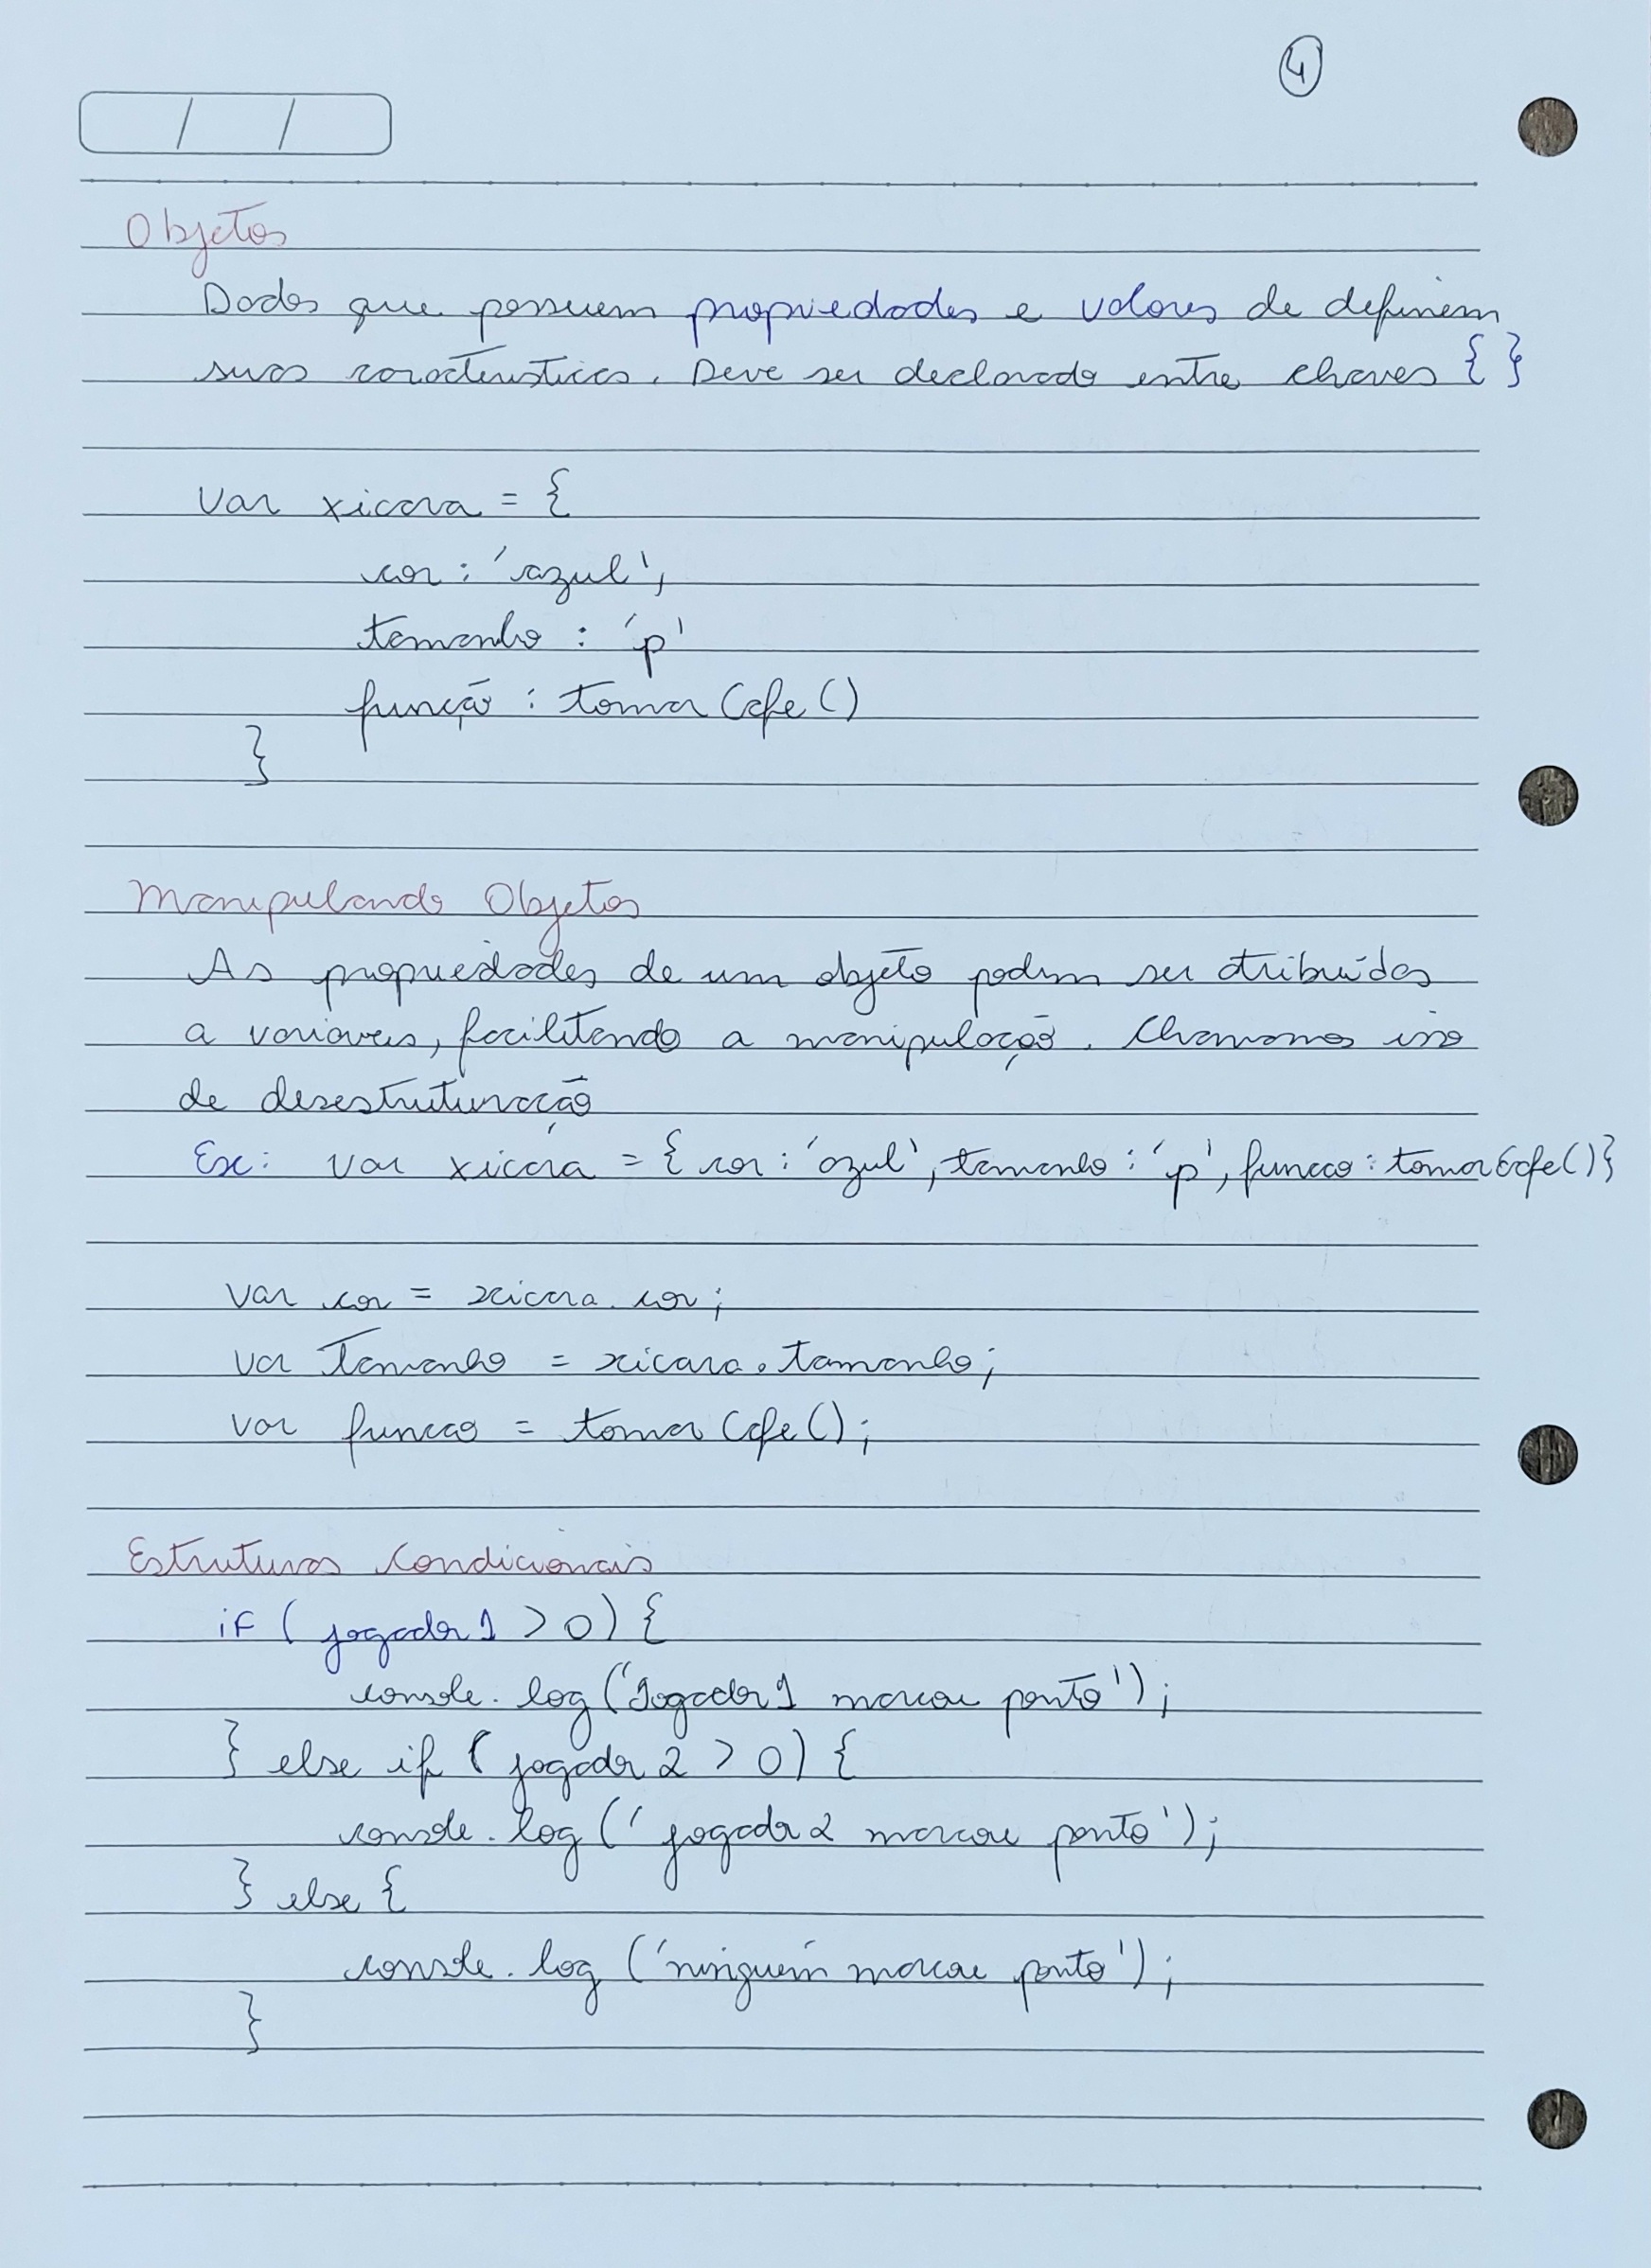 4
/ /
Objetos
Dados que possuem propriedades e valores de definem
suas características. Deve ser declarado entre chaves { }
var xicara = {
cor : 'azul',
tamanho : 'p'
função : tomarCafe()
}
Manipulando Objetos
As propriedades de um objeto podem ser atribuídas
a variaveis, facilitando a manipulação. Chamamos isso
de desestruturação
Ex: var xicara = { cor : 'azul', tamanho : 'p', funcao : tomarCafe()}
var cor = xicara.cor;
var Tamanho = xicara.tamanho;
var funcao = tomarCafe();
Estruturas Condicionais
if ( jogador1 > 0) {
console.log('Jogador1 marcou ponto');
} else if ( jogador2 > 0) {
console.log(' jogador2 marcou ponto');
} else {
console.log ('ninguém marcou ponto');
}